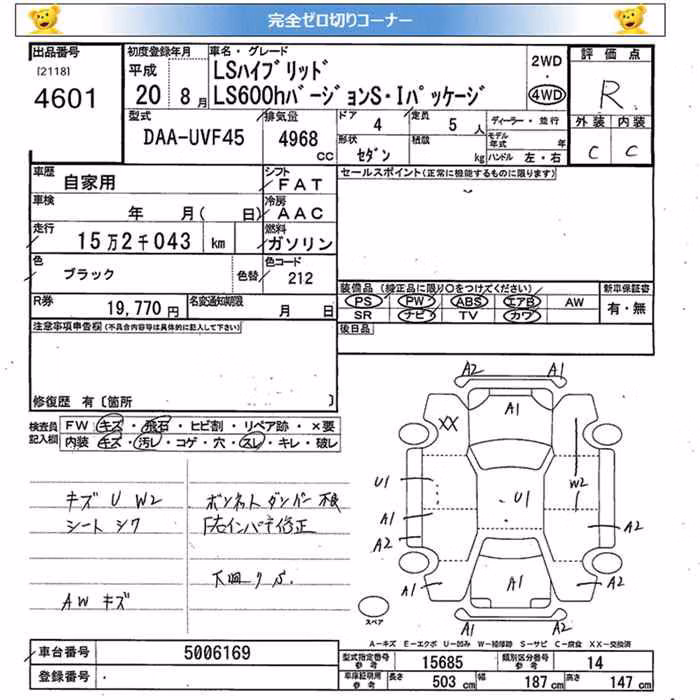 完全ゼロ切りコーナー
出品番号
[2118]
4601
初度登録年月
平成
20 8月
車名・グレード
LSハイブリッド
LS600hバージョンS・Iパッケージ
2WD
・
4WD
評価点
R
外装 内装
C C
型式
DAA-UVF45
排気量
4968
CC
ドア 4
定員 5 人
形状 セダン
積載 kg
ディーラー・並行
モデル年式 年
ハンドル 左・右
車歴
自家用
シフト
FAT
車検
年 月( 日)
冷房
AAC
走行
15万2千043 km
燃料
ガソリン
色
ブラック
色替
色コード
212
R券
19,770 円
名変通知期限
月 日
セールスポイント(正常に機能するものに限ります)
装備品(純正品に限り○をつけてください)
新車保証書
PS PW ABS エアB AW
SR ナビ TV カワ
有・無
後日品
注意事項申告欄(不具合内容等は具体的に記入して下さい)
修復歴 有〔箇所 〕
検査員記入欄
FW キズ・飛石・ヒビ割・リペア跡・×要
内装 キズ・汚レ・コゲ・穴・スレ・キレ・破レ
キズ U W2
シート シワ
AW キズ
ボンネットダンパー不良
F右インパネ修正
下廻りS
A2 A1
A1
XX
U1
W2
U1
A1
A2
A2
A1
A1
A2
A1
A2
スペア
A-キズ E-エクボ U-凹み W-補修跡 S-サビ C-腐食 XX-交換済
車台番号
5006169
登録番号
型式指定番号
参考
15685
類別区分番号
参考
14
車庫証明用
参考
長さ 503 cm
幅 187 cm
高さ 147 cm